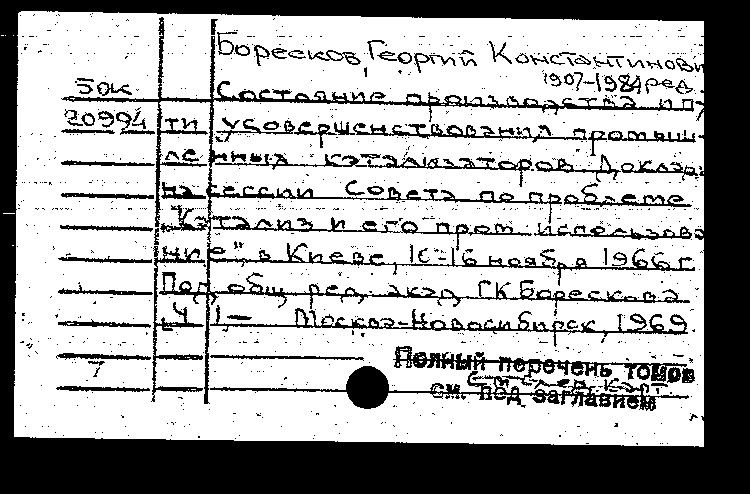 Боресков, Георгий Константинови
1907-1984, ред.
50к Состояние производства и пу
20994 ти усовершенствования промыш-
ленных катализаторов. Доклады
на сессии Совета по проблеме
"Катализ и его пром. использова
ние", в Киеве, 10-16 ноября 1966 г.
Под общ. ред. акад. Г.К. Борескова
Ч. 1— Москва-Новосибирск, 1969.
7 Полный перечень томов
См. след. карт.
см. под заглавием